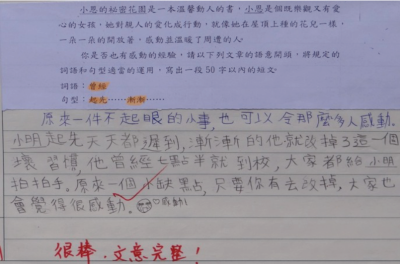 小恩的秘密花園是一本溫馨動人的書，小恩是個既樂觀又有愛
心的女孩，她對親人的愛化成行動，就像她在屋頂上種的花兒一樣，
一朵一朵的開放著，感動且溫暖了周邊的人。
你是否也有感動的經驗，請以下列文章的語意開頭，將規定的
詞語和句型適當的運用，寫出一段50字以內的短文。
詞語：曾經
句型：起先……漸漸……
原來一件不起眼的小事，也可以令那麼多人感動。
小明起先天天都遲到，漸漸的他就改掉了這一個
壞習慣，他曾經七點半就到校，大家都給小明
拍拍手。原來一個小缺點，只要你有去改掉，大家也
會覺得很感動。
很棒，文意完整！